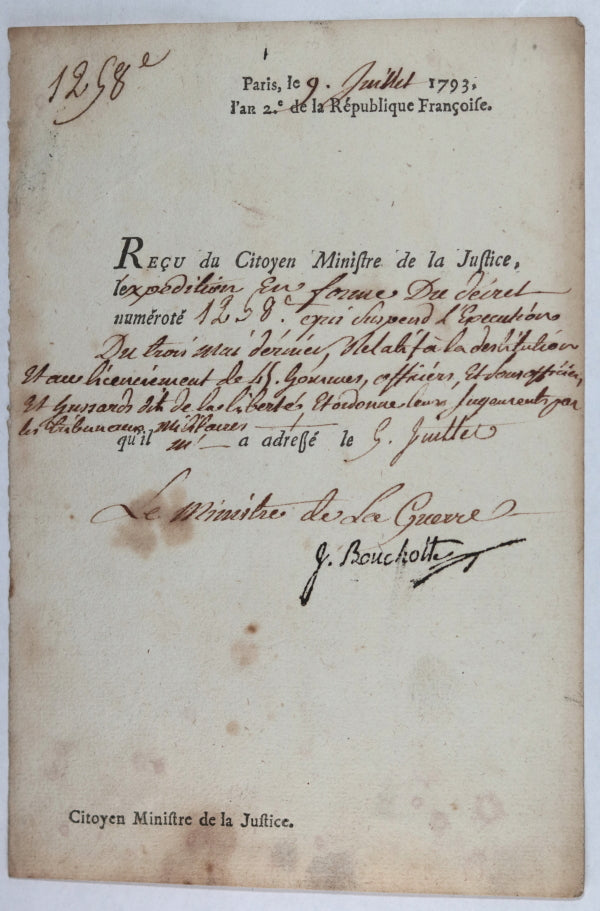 1258e
Paris, le 9. Juillet 1793,
l'an 2.e de la République Françoise.
REÇU du Citoyen Ministre de la Justice,
lexpedition En forme Du décret
numéroté 1258e. qui suspend l'Execution
Du trois mai dernier, Relatif à la destitution
Et au licenciement de 45. hommes, officiers, Et sous officiers,
Et hussards dit de la liberté, Et ordonne leurs jugements par
les tribunaux militaires
qu'il m' a adressé le 5. Juillet
Le Ministre de La Guerre
J. Bouchotte
Citoyen Ministre de la Justice.